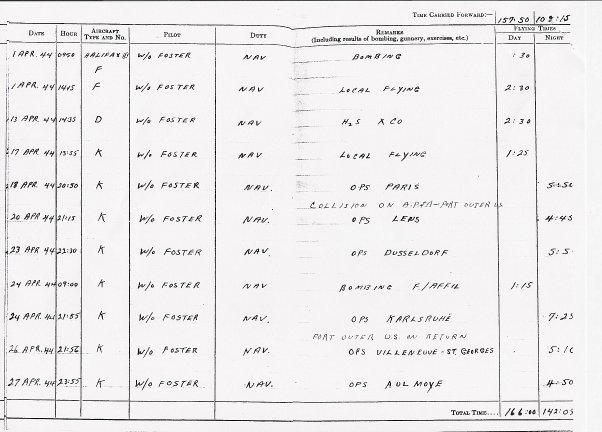 TIME CARRIED FORWARD:— 157:50 109:15
DATE HOUR AIRCRAFT TYPE AND NO. PILOT DUTY REMARKS (Including results of bombing, gunnery, exercises, etc.) FLYING TIMES DAY NIGHT
1 APR. 44 0950 HALIFAX III F W/O FOSTER NAV BOMBING 1:30
1 APR. 44 1415 F W/O FOSTER NAV LOCAL FLYING 2:30
13 APR 44 1435 D W/O FOSTER NAV H2S X CO 2:30
17 APR 44 15:55 K W/O FOSTER NAV LOCAL FLYING 1:25
18 APR 44 20:50 K W/O FOSTER NAV. OPS PARIS
COLLISION ON PORT OUTER US
20 APR 44 21:15 K W/O FOSTER NAV. OPS LENS 4:45
23 APR 44 22:30 K W/O FOSTER NAV. OPS DUSSELDORF 5:5
24 APR 44 09:00 K W/O FOSTER NAV BOMBING F/AFFIL 1:15
24 APR 44 21:55 K W/O FOSTER NAV. OPS KARLSRUHE 7:25
PORT OUTER U.S. ON RETURN
26 APR. 44 21:56 K W/O FOSTER NAV. OPS VILLENEUVE-ST. GEORGES 5:10
27 APR. 44 23:55 K W/O FOSTER NAV. OPS AULMOYE 4:50
TOTAL TIME.... 166:00 142:05